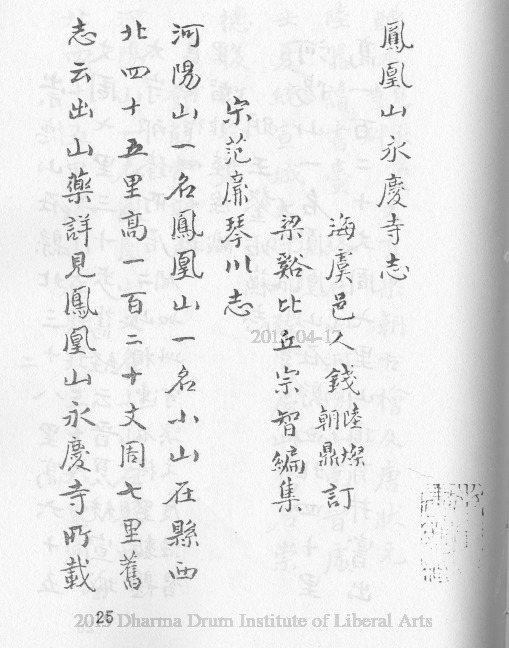 鳳凰山永慶寺志
海虞邑人錢陸燦朝鼎訂
梁谿比丘宗智編集
宋范廉琴川志
河陽山一名鳳凰山一名小山在縣西
北四十五里高一百二十丈周七里舊
志云出山藥詳見鳳凰山永慶寺所載
2013-04-17
25
2013 Dharma Drum Institute of Liberal Arts